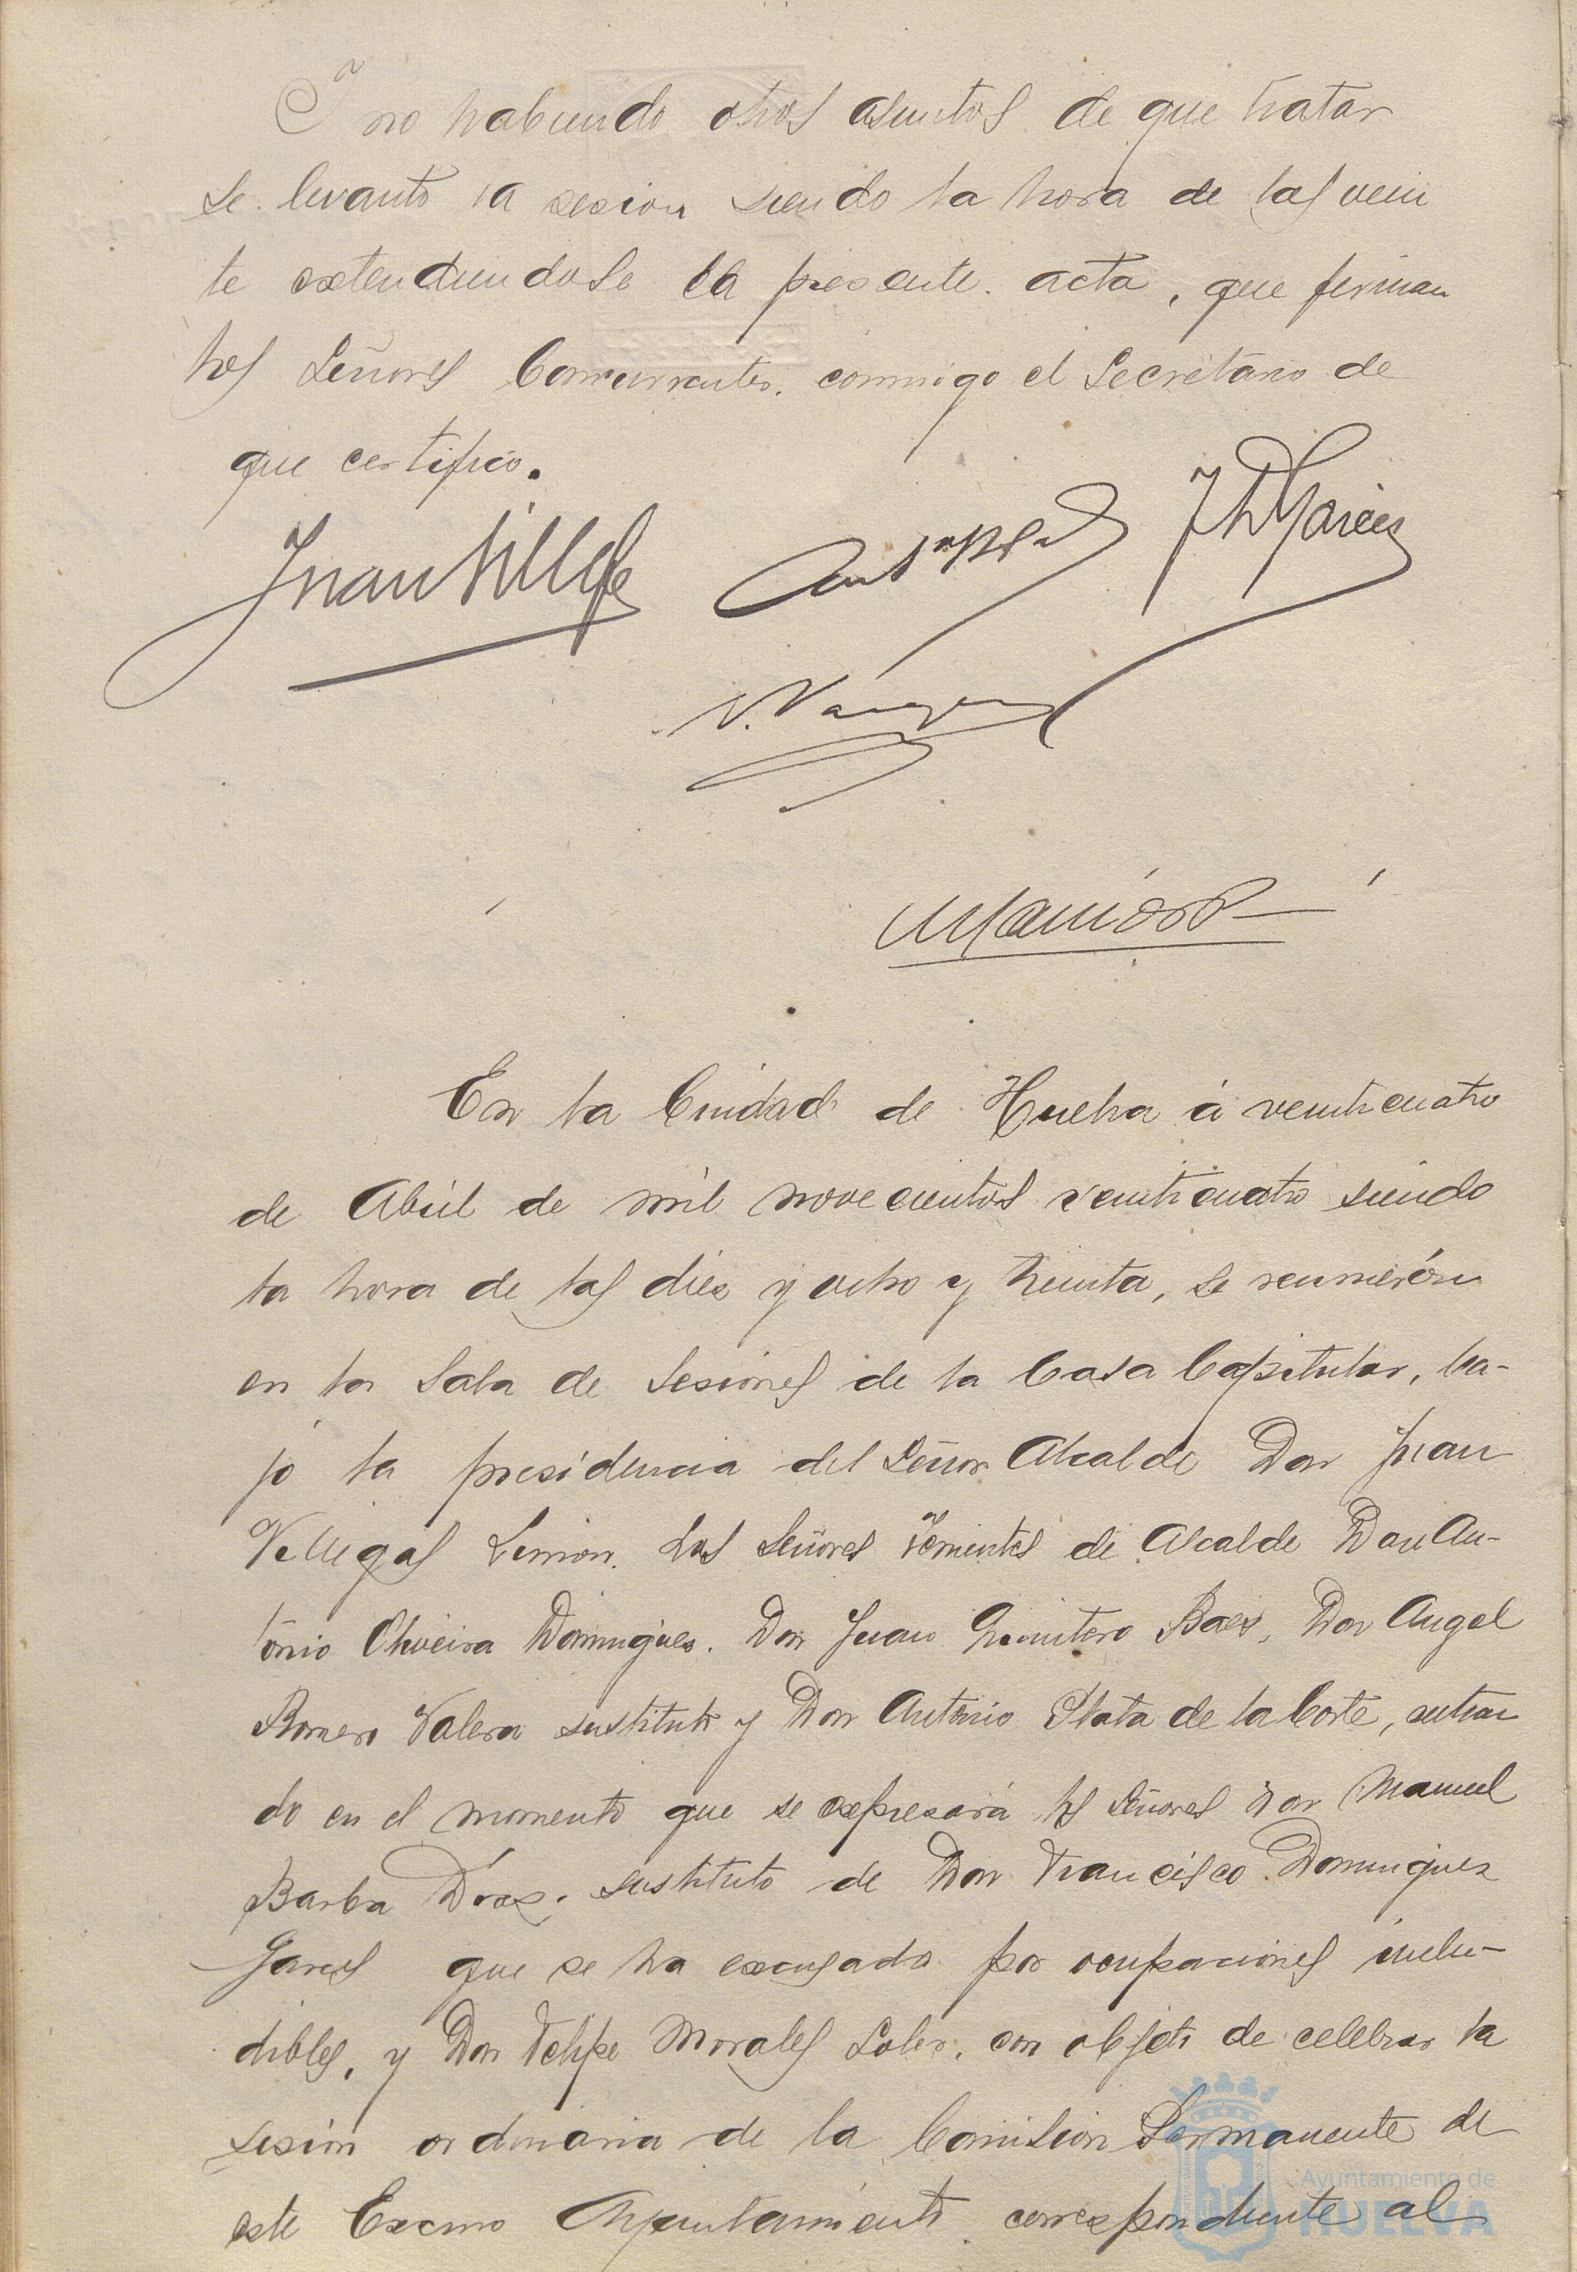 Y no habiendo otros asuntos de que tratar
se levantó la sesion siendo la hora de las vein
te extendiendose la presente acta, que firman
los Señores Concurrentes, conmigo el Secretario de
que certifico.
Juan Ville
J D Garces
V. Vazquez
En la Ciudad de Huelva á veinticuatro
de Abril de mil novecientos veinticuatro siendo
la hora de las diez y ocho y treinta, se reunierón
en la Sala de Sesiones de la Casa Capitular, ba-
jo la presidencia del Señor Alcalde Don Juan
Villegas Limon, los Señores Tenientes de Alcalde Don An-
tonio Oliveira Dominguez, Don Juan Quintero Baez, Don Angel
Romero Valera sustituto y Don Antonio Plata de la Corte, entran
do en el momento que se expresará los Señores Don Manuel
Barba Díaz, sustituto de Don Francisco Dominguez
Garces que se ha excusado por ocupaciones inelu-
dibles, y Don Felipe Morales Soler, con objeto de celebrar la
sesión ordinaria de la Comision Permanente de
este Excmo Ayuntamiento correspondiente al
Ayuntamiento de
HUELVA